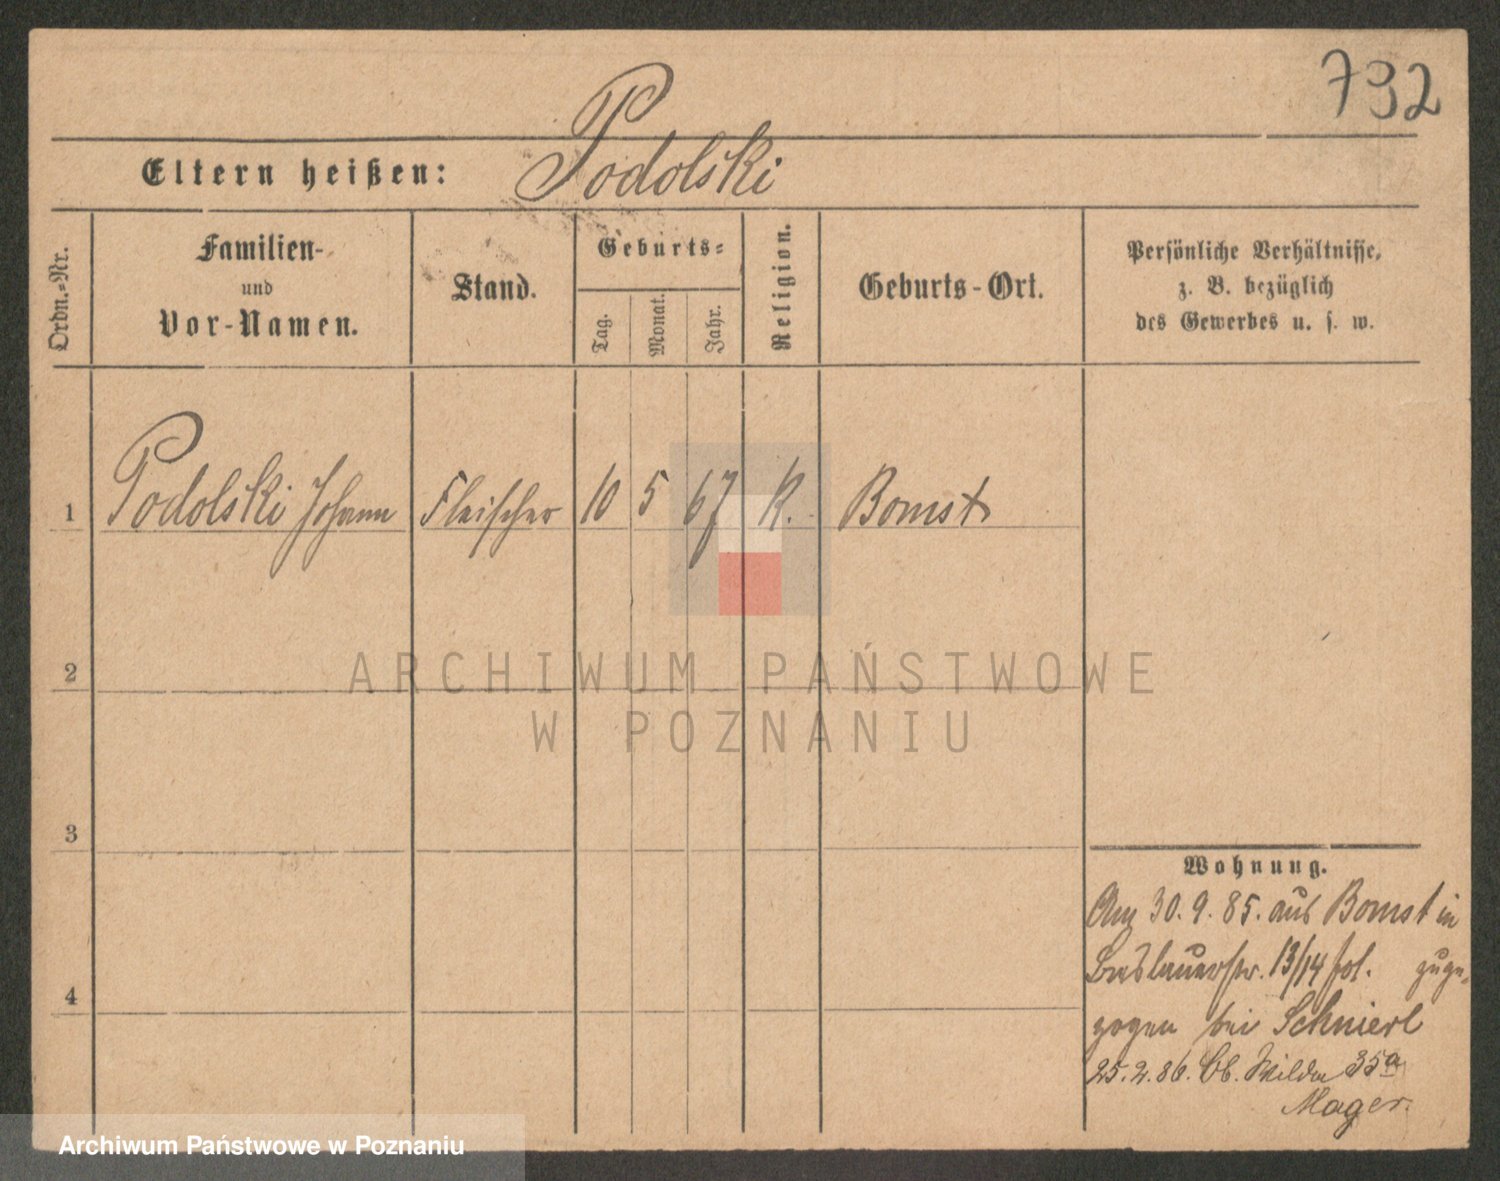 732
Eltern heißen: Podolski
Ordn.-Nr.
Familien-
und
Vor-Namen.
Stand.
Geburts-
Tag.
Monat.
Jahr.
Religion.
Geburts-Ort.
Persönliche Verhältnisse,
z. B. bezüglich
des Gewerbes u. s. w.
1 Podolski Johann Fleischer 10 5 67 K. Bomst
2
3
4
Wohnung.
Am 30. 9. 85. aus Bomst in
Breslauerstr. 13/14 zuge-
zogen bei Schnierl
25. 2. 86. Ob. Wilda 35a
Mager.
ARCHIWUM PAŃSTWOWE
W POZNANIU
Archiwum Państwowe w Poznaniu